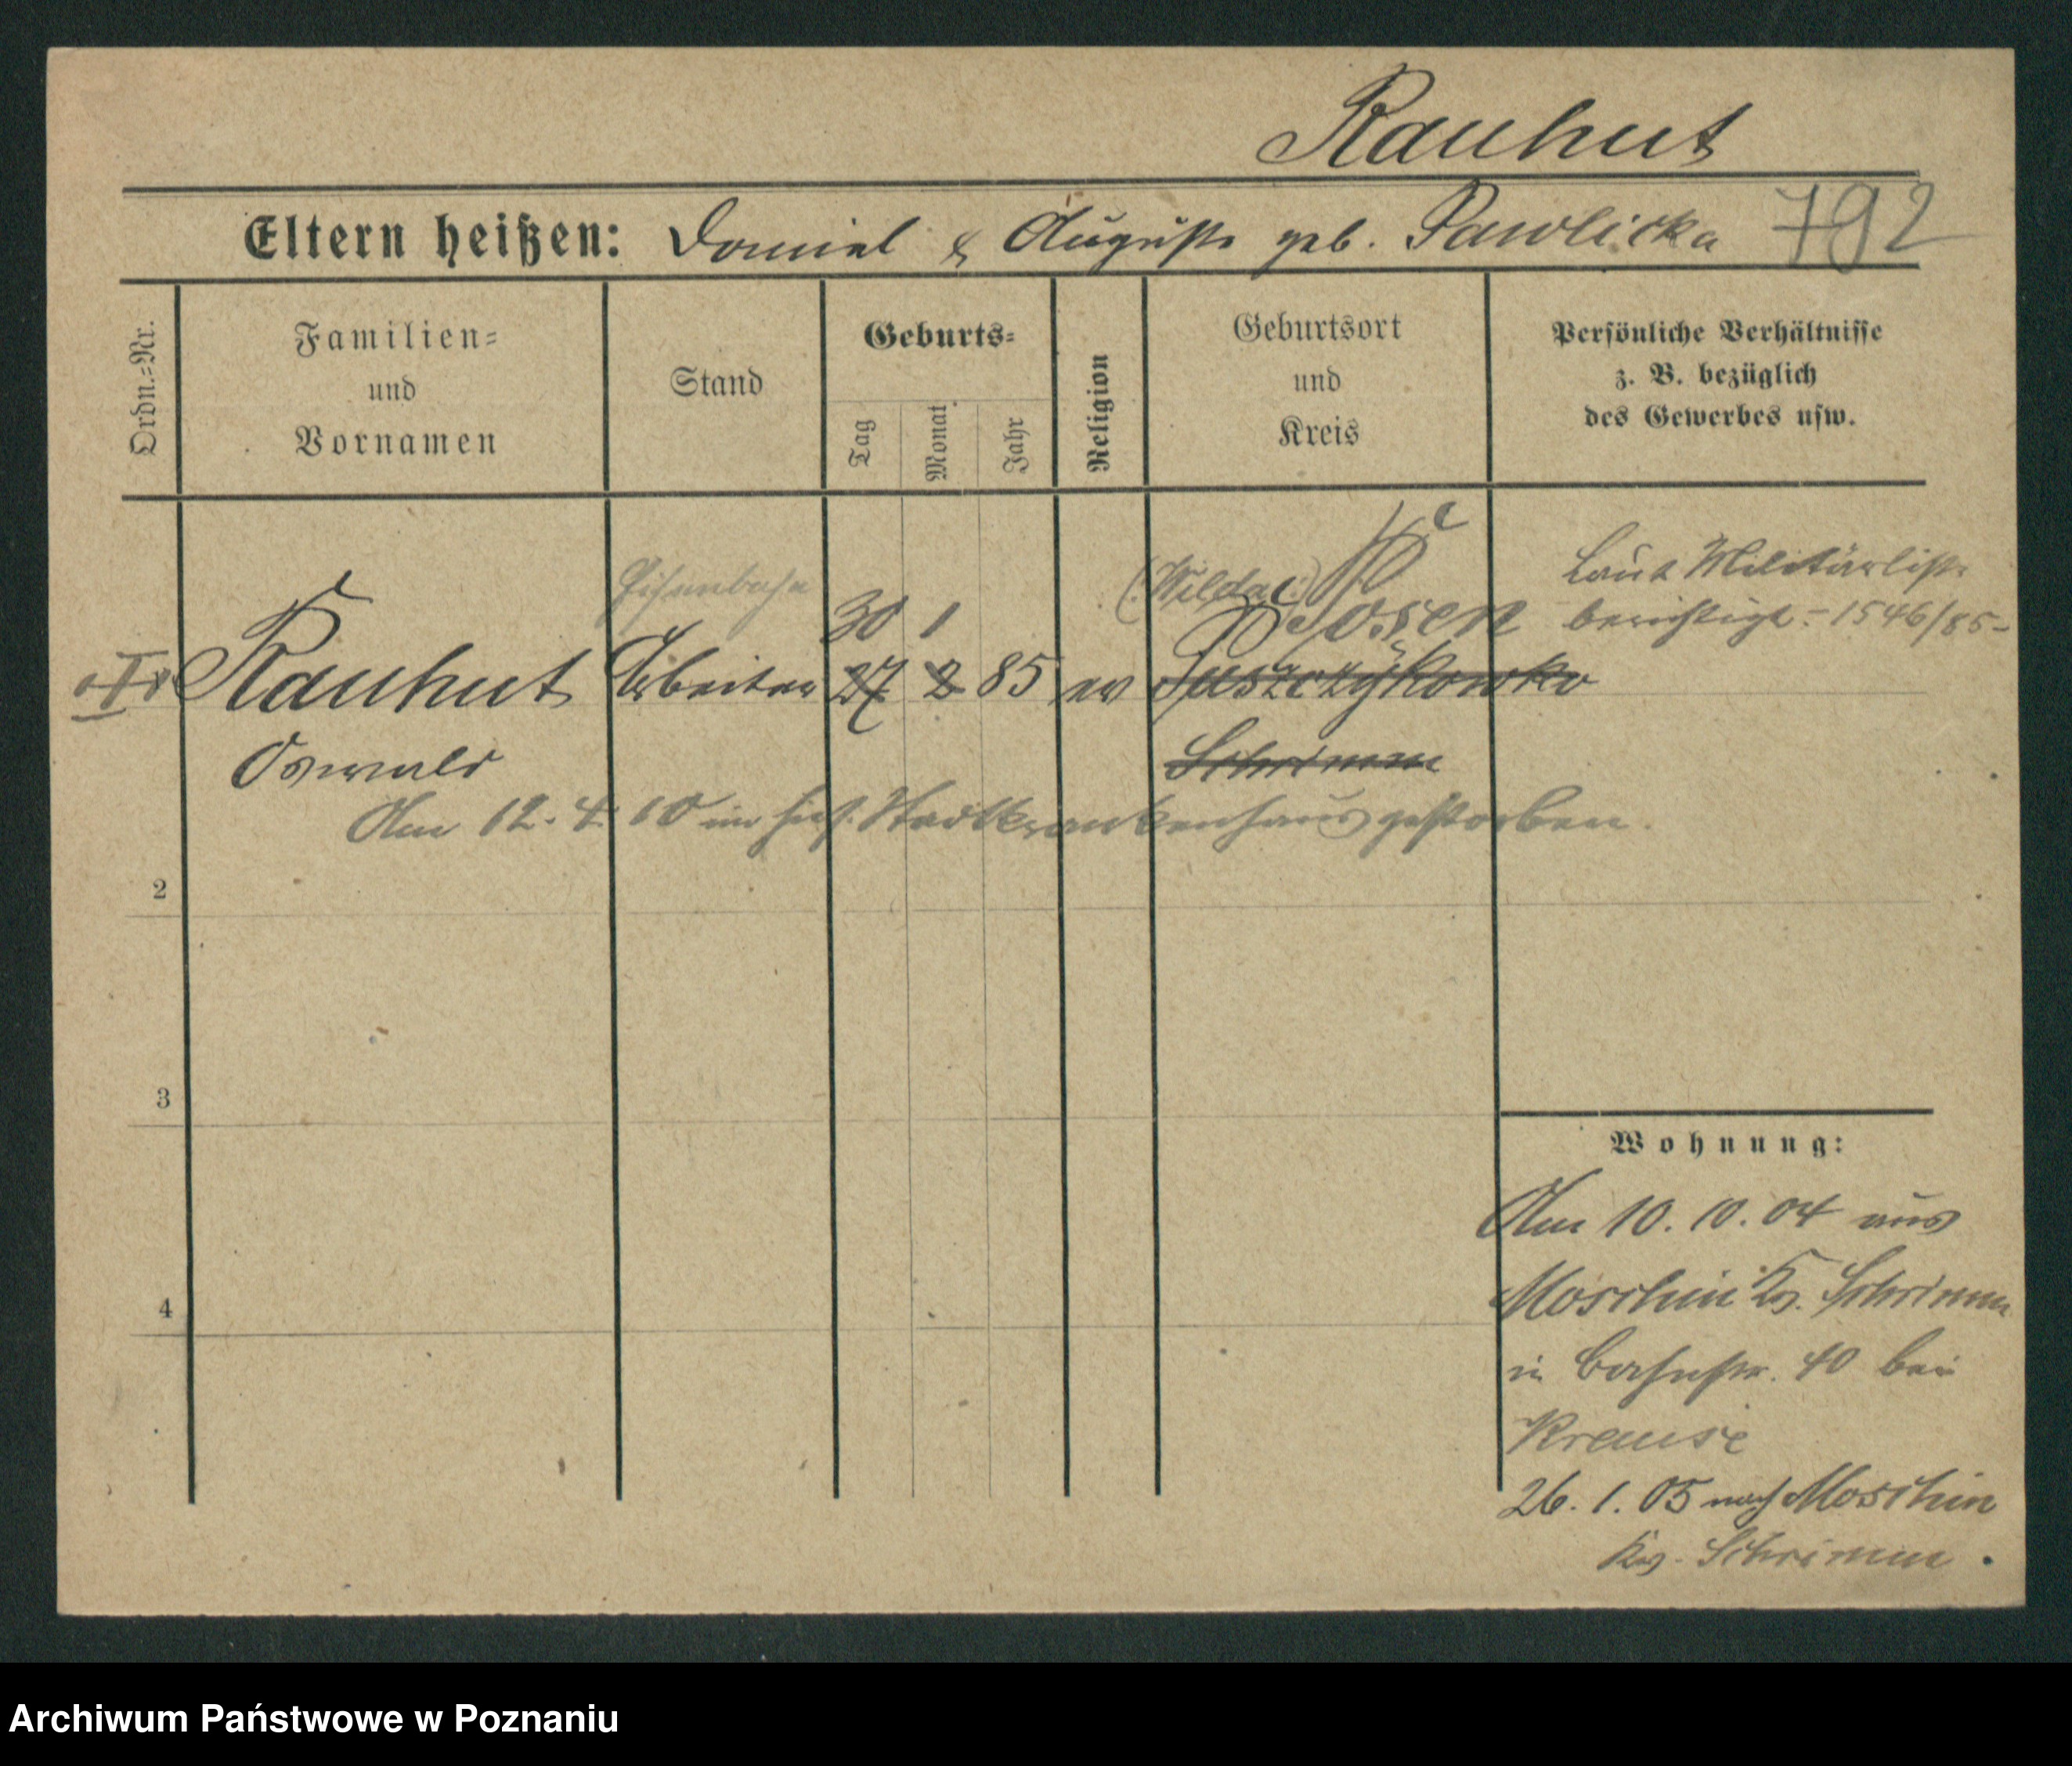 Rauhut
Eltern heißen: Daniel & Auguste geb. Pawlicka 792
Ordn.=Nr.
Familien=
und
Vornamen
Stand
Geburts=
Tag
Monat
Jahr
Religion
Geburtsort
und
Kreis
Persönliche Verhältnisse
z. B. bezüglich
des Gewerbes usw.
Eisenbahn
30 1
(Wilda) Posen
Laut Militärliste
berichtigt = 1546/85 -
I Rauhut Arbeiter 27 2 85 ev Puszczykowko
Oswald Schrimm
Am 12. 4. 10 im hies. Stadtkrankenhaus gestorben.
2
3
4
Wohnung:
Am 10. 10. 04 aus
Moschin Krs. Schrimm
in Bahnstr. 40 bei
Krause
26. 1. 05 nach Moschin
Krs. Schrimm.
Archiwum Państwowe w Poznaniu